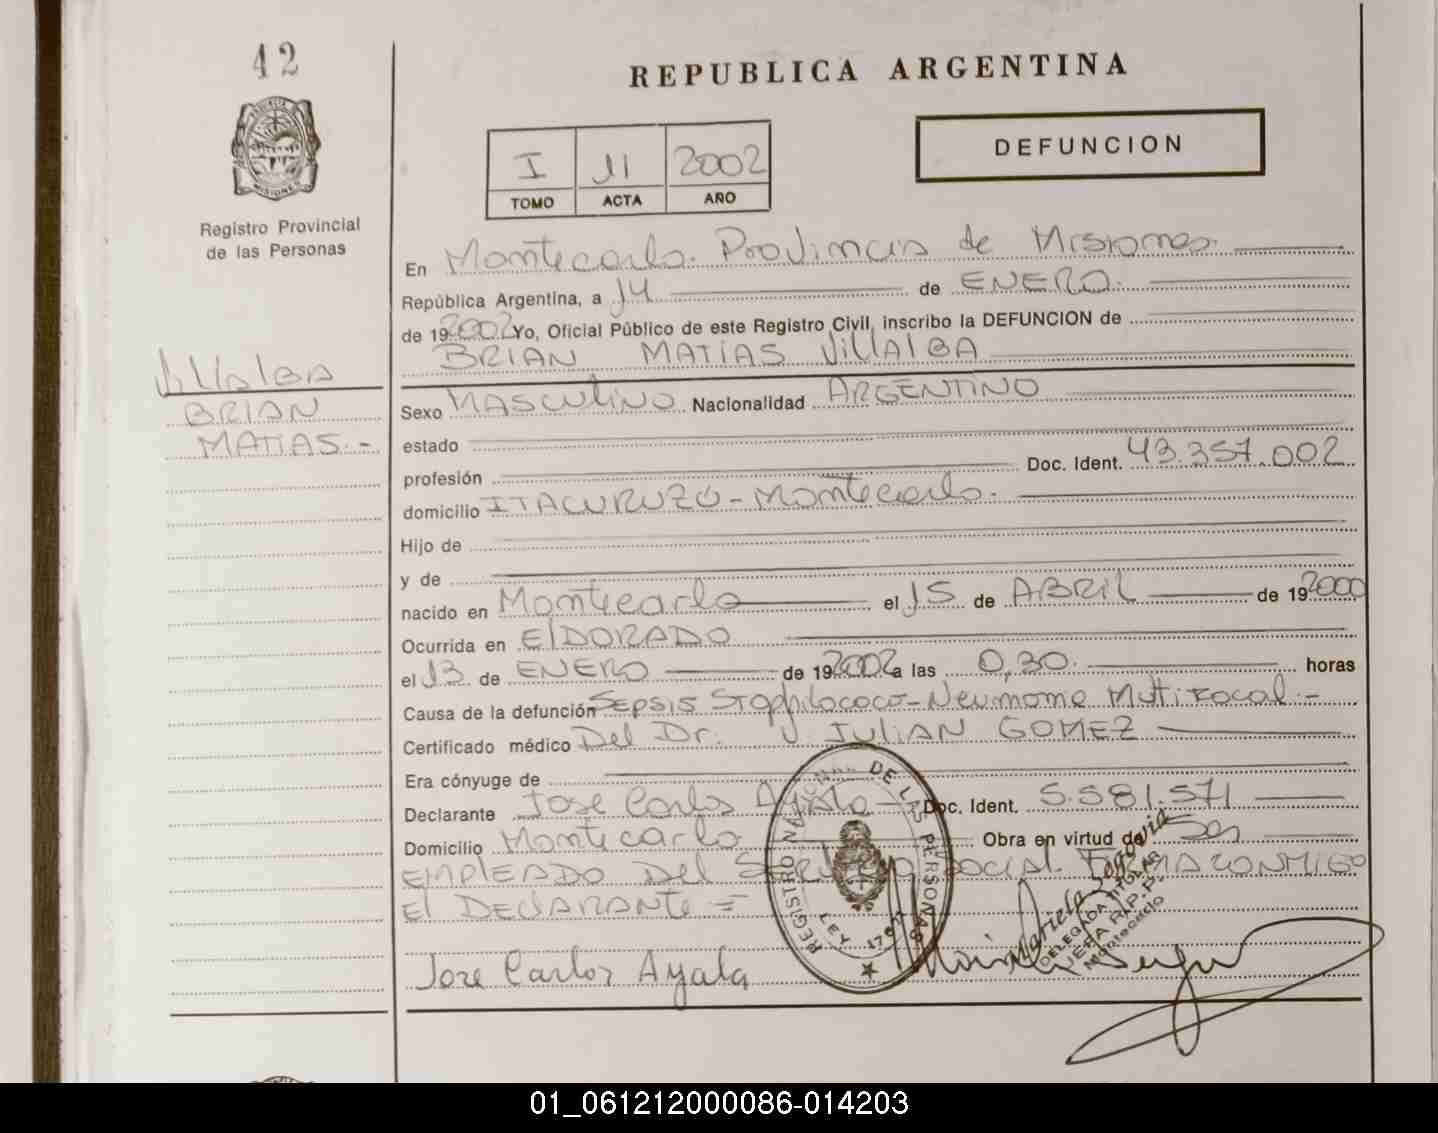 42
REPUBLICA ARGENTINA
MISIONES
Registro Provincial
de las Personas
I 11 2002
TOMO ACTA AÑO
DEFUNCION
En Montecarlo. Provincia de Misiones.
República Argentina, a 14 de ENERO.
de 192002 Yo, Oficial Público de este Registro Civil, inscribo la DEFUNCION de
BRIAN MATIAS VillAlBA
VillAlBA
BRIAN
MATIAS.-
Sexo MASCULINO Nacionalidad ARGENTINO
estado
profesión Doc. Ident. 43.357.002
domicilio ITACURUZÓ - Montecarlo.
Hijo de
y de
nacido en Montecarlo el 15 de ABRIL de 192000
Ocurrida en ElDORADO
el 13 de ENERO de 192002 a las 0,30. horas
Causa de la defunción SEPSIS Staphilococo - Neumonie Multifocal.-
Certificado médico Del Dr. J. JULIAN GOMEZ
Era cónyuge de
Declarante Jose Carlos Ayala - Doc. Ident. 5.581.571
Domicilio Montecarlo Obra en virtud de Ser
EMPLEADO Del SERVICIO SOCIAL. FIRMA CONMIGO
El DEClARANTE =
Jose Carlos Ayala
REGISTRO NACIONAL DE LAS PERSONAS
LEY
Mariela Segovia
DELEGADA TITULAR
JEFA R.P.P.
Montecarlo
01_061212000086-014203